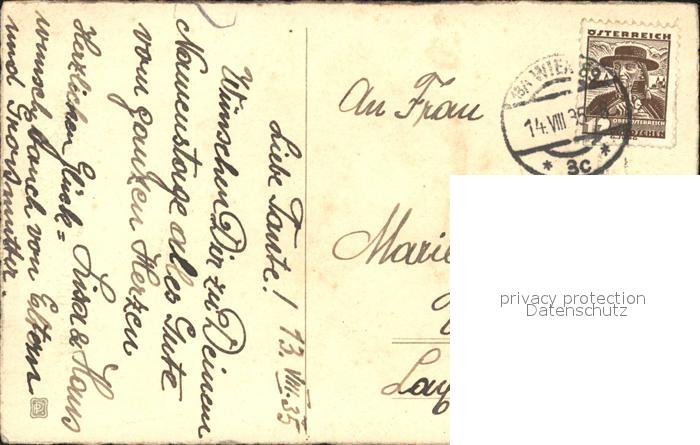 Liebe Tante! 13.VIII.35
Wünschen Dir zu Deinem
Namenstage alles Gute
vom ganzen Herzen
Lisa & Hans
Herzlichen Glück=
wunsch auch von Eltern
und Großmutter.
An Frau
Marie
ÖSTERREICH
OBERÖSTERREICH
GROSCHEN
WIEN
14.VIII.35
* 3C *
privacy protection
Datenschutz